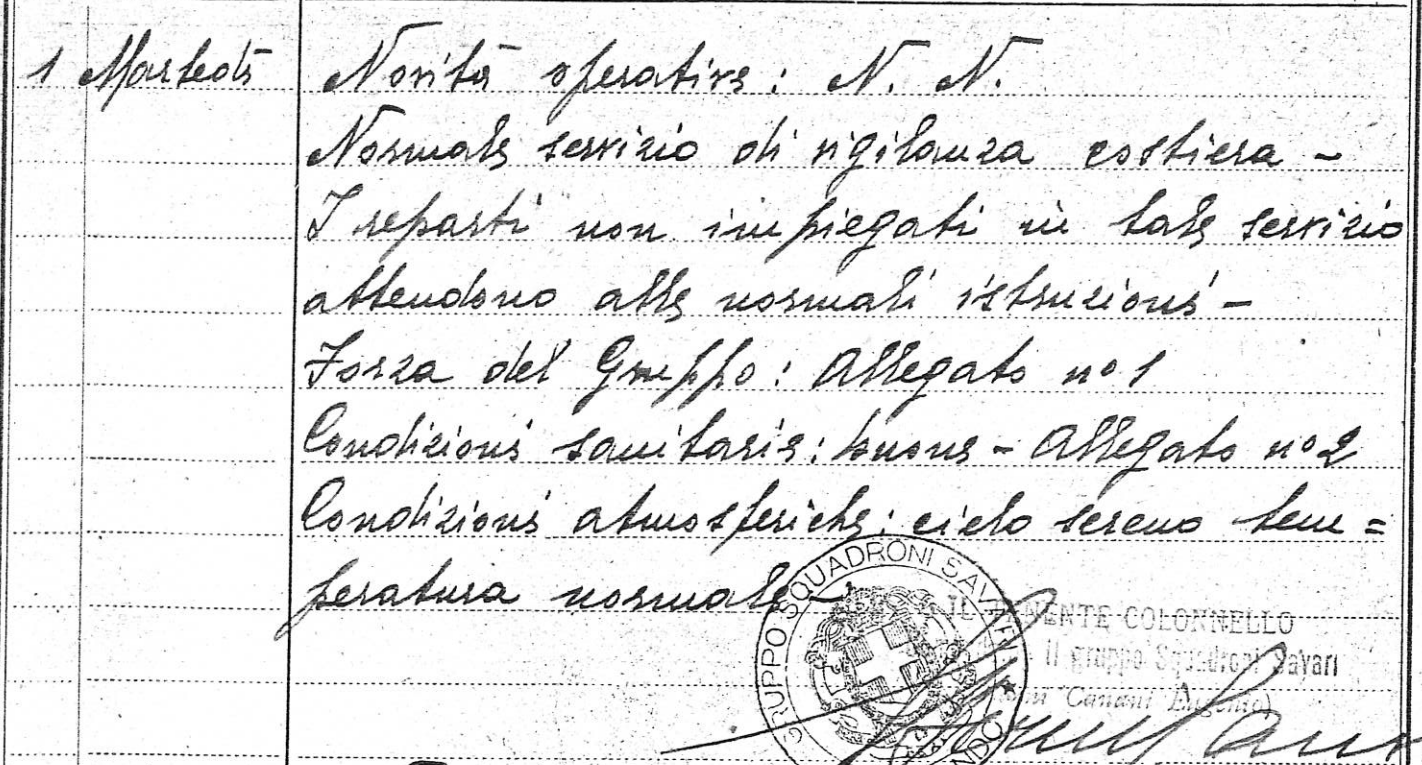 1 Martedì Novità operative: N. N.
Normale servizio di vigilanza costiera -
I reparti non impiegati in tale servizio
attendono alle normali istruzioni -
Forza del Gruppo: Allegato n° 1
Condizioni sanitarie: buone - Allegato n° 2
Condizioni atmosferiche: cielo sereno tem =
peratura normale -
GRUPPO SQUADRONI SAVARI
IL TENENTE COLONNELLO
il gruppo Squadroni Savari
Canani Eugenio)